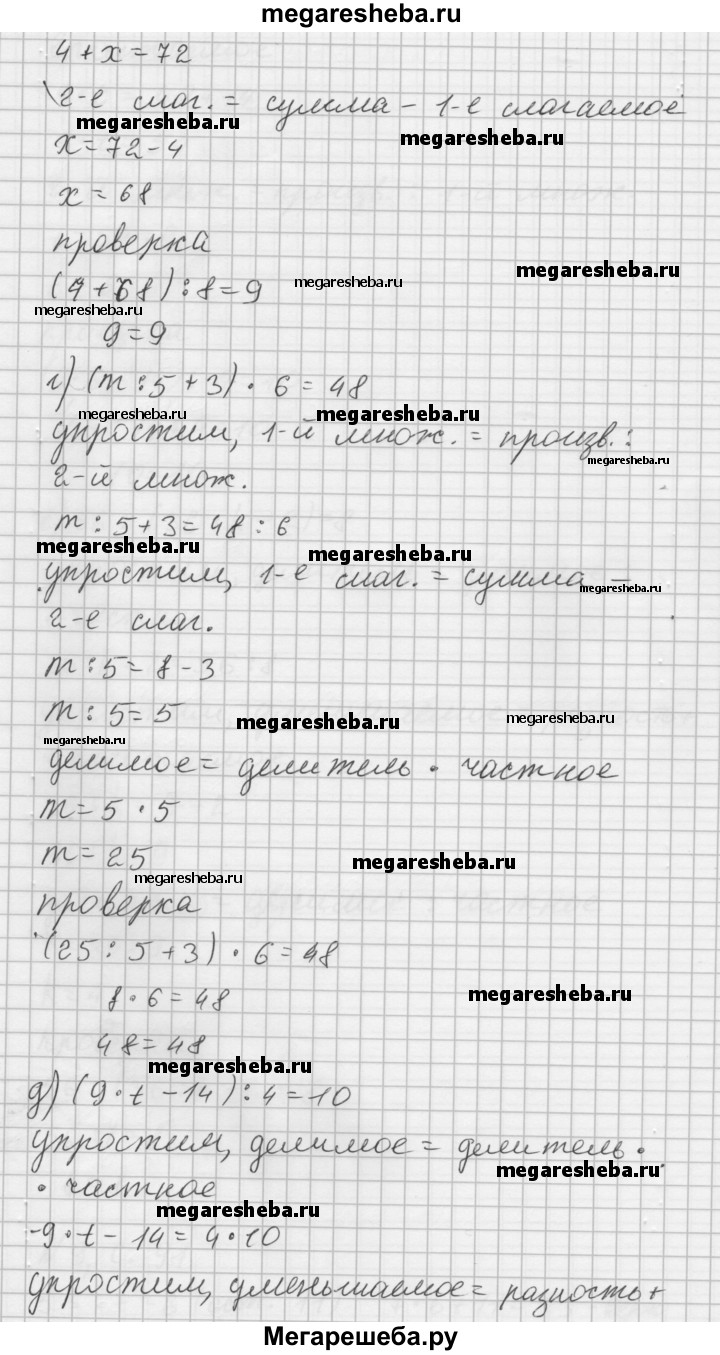 megaresheba.ru
4 + x = 72
2-е слаг. = сумма - 1-е слагаемое
megaresheba.ru
megaresheba.ru
x = 72 - 4
x = 68
проверка
megaresheba.ru
(4 + 68) : 8 = 9
megaresheba.ru
megaresheba.ru
9 = 9
г) (m : 5 + 3) · 6 = 48
megaresheba.ru
megaresheba.ru
упростим, 1-й множ. = произв. :
megaresheba.ru
2-й множ.
m : 5 + 3 = 48 : 6
megaresheba.ru
megaresheba.ru
упростим, 1-е слаг. = сумма -
megaresheba.ru
2-е слаг.
m : 5 = 8 - 3
m : 5 = 5
megaresheba.ru
megaresheba.ru
megaresheba.ru
делимое = делитель · частное
m = 5 · 5
m = 25
megaresheba.ru
megaresheba.ru
проверка
(25 : 5 + 3) · 6 = 48
8 · 6 = 48
megaresheba.ru
48 = 48
megaresheba.ru
д) (9 · t - 14) : 4 = 10
упростим, делимое = делитель ·
megaresheba.ru
· частное
megaresheba.ru
9 · t - 14 = 4 · 10
упростим, уменьшаемое = разность +
Мегарешеба.ру